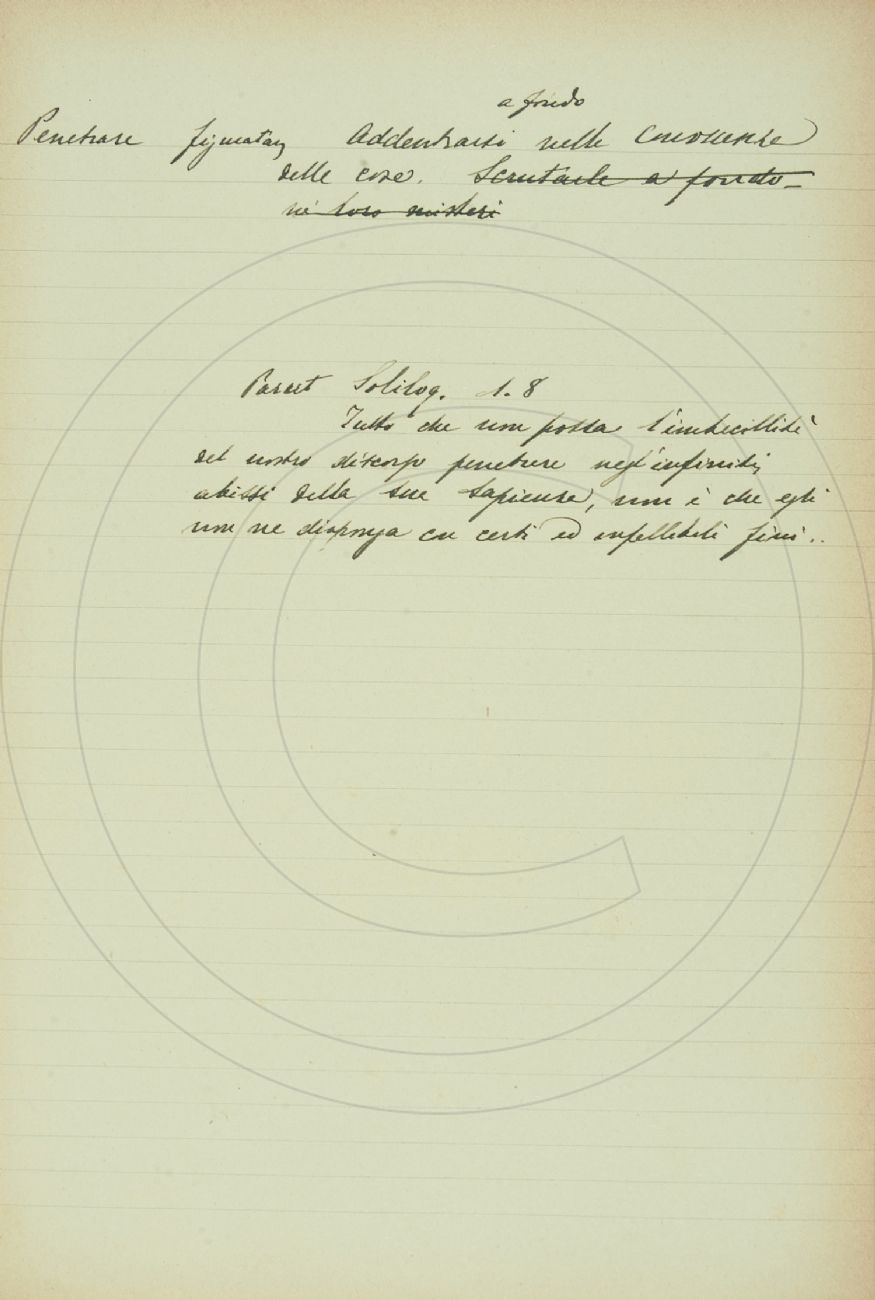 a fondo
Penetrare figuratam Addentrarsi nella conoscenza
delle cose. Scrutarle a fondo
ne' loro misteri
Soliloq. 1. 8
Tutto che non possa l'imbecillità
del nostro discorso penetrare negl'infiniti
abissi della sua sapienza, non è che egli
non ne disponga con certi ed infallibili fini..